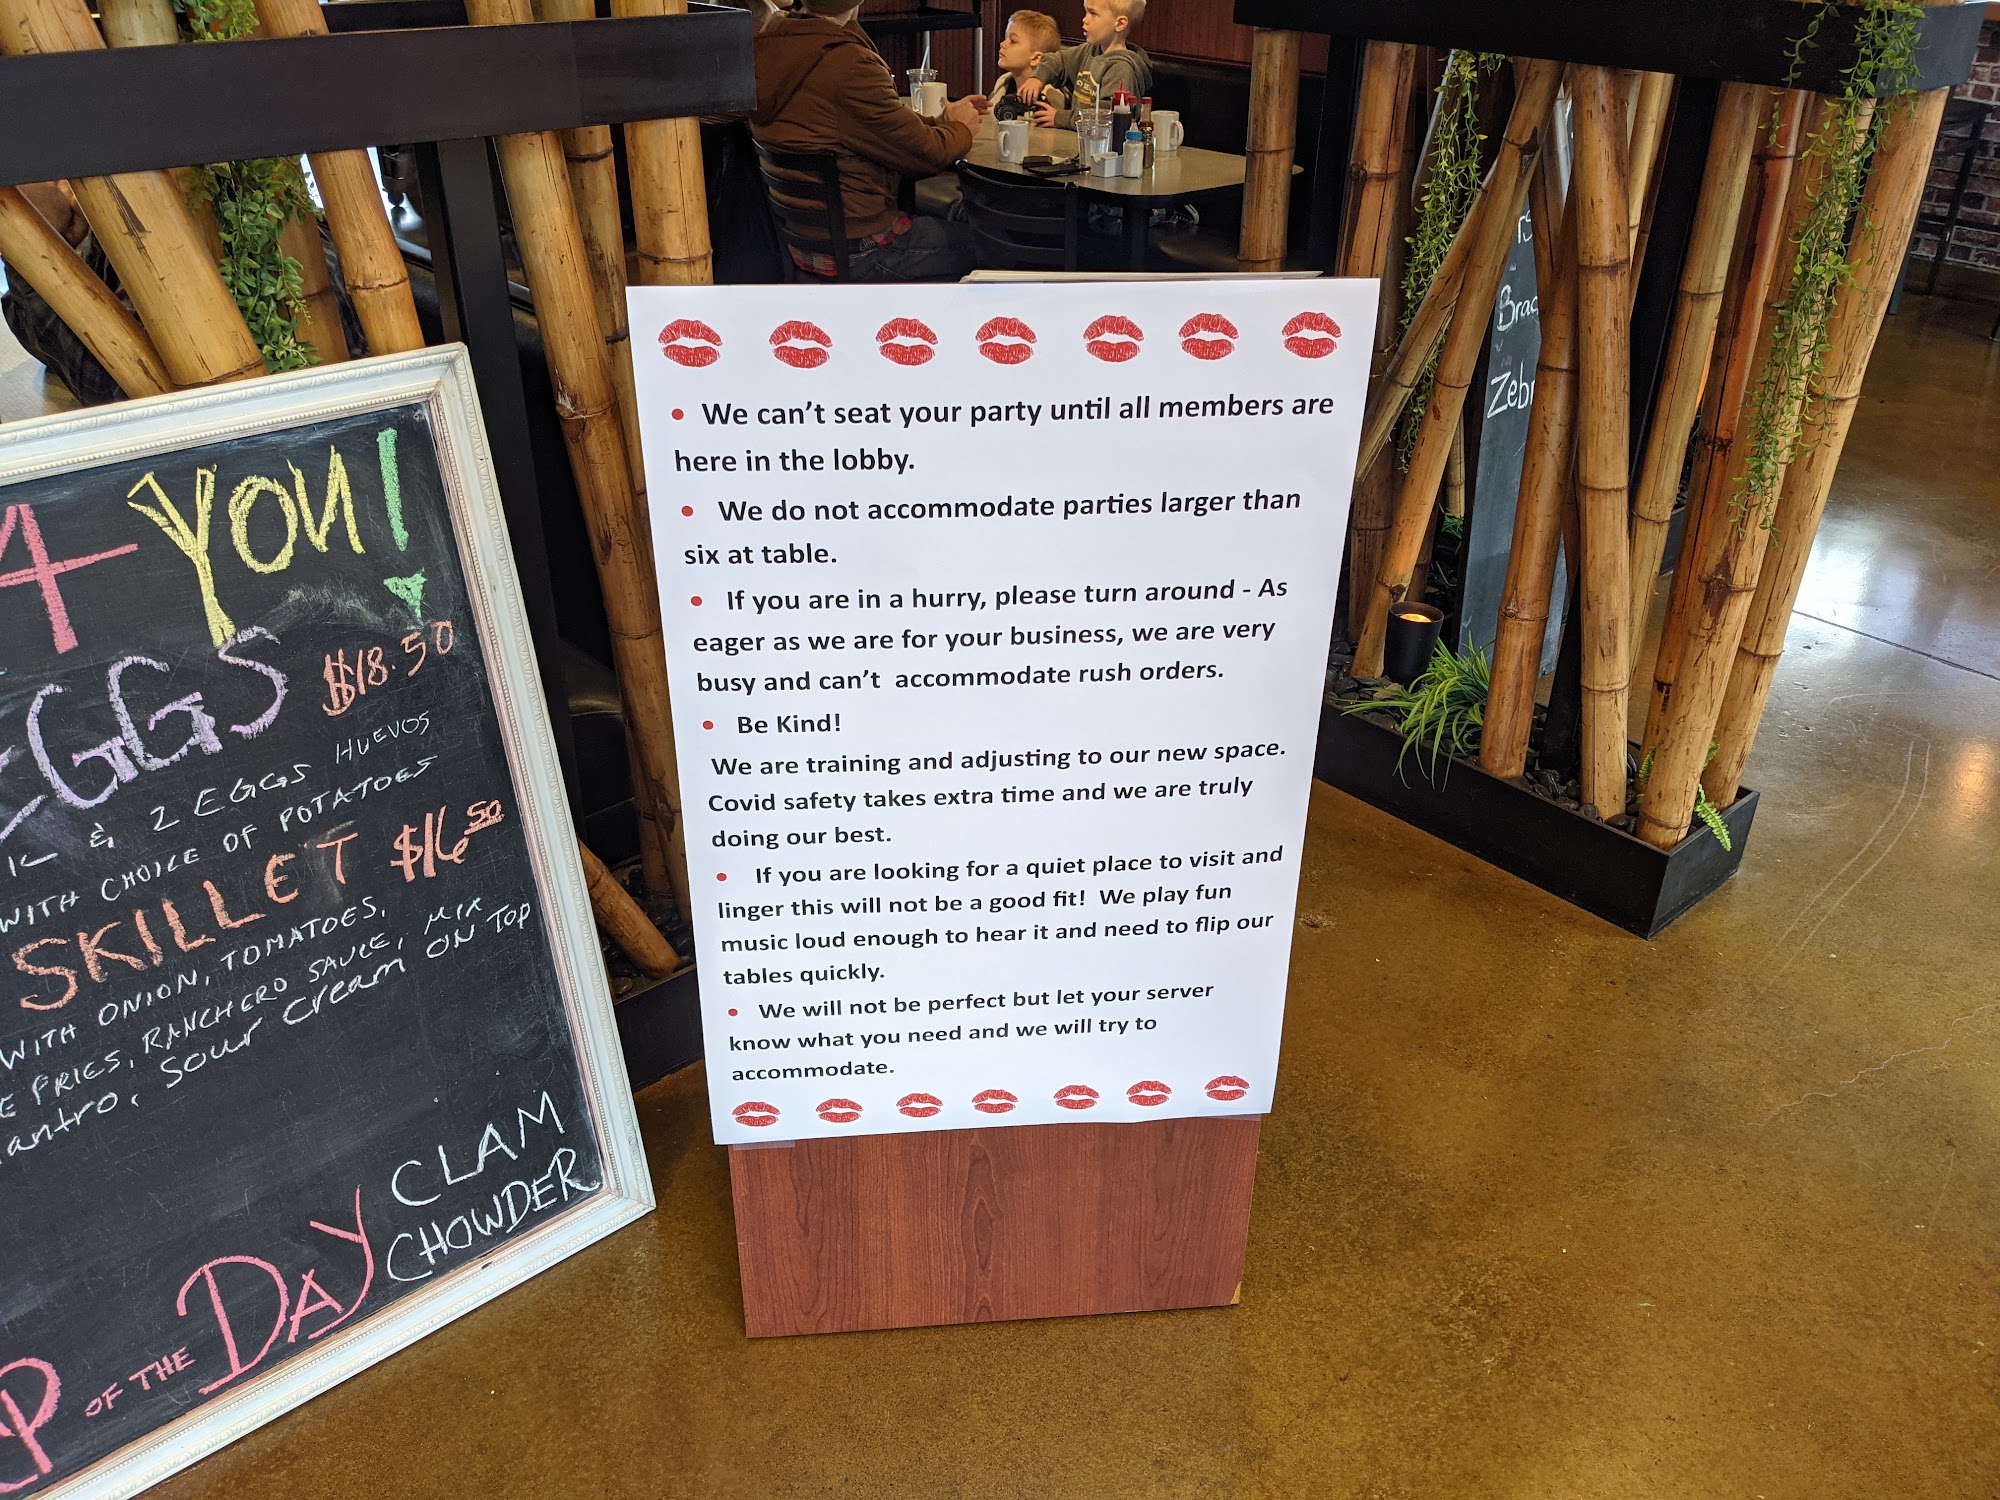 4 YOU!
EGGS $18.50
& 2 EGGS HUEVOS
WITH CHOICE OF POTATOES
SKILLET $16.50
WITH ONION, TOMATOES,
FRIES, RANCHERO SAUCE, MIX
SOUR CREAM ON TOP
OF THE DAY CLAM
CHOWDER
• We can't seat your party until all members are
here in the lobby.
• We do not accommodate parties larger than
six at table.
• If you are in a hurry, please turn around - As
eager as we are for your business, we are very
busy and can't accommodate rush orders.
• Be Kind!
We are training and adjusting to our new space.
Covid safety takes extra time and we are truly
doing our best.
• If you are looking for a quiet place to visit and
linger this will not be a good fit! We play fun
music loud enough to hear it and need to flip our
tables quickly.
• We will not be perfect but let your server
know what you need and we will try to
accommodate.